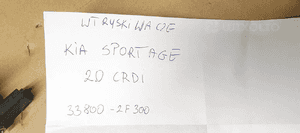 WTRYSKIWACZE
KIA SPORTAGE
2.0 CRDI
33800-2F300